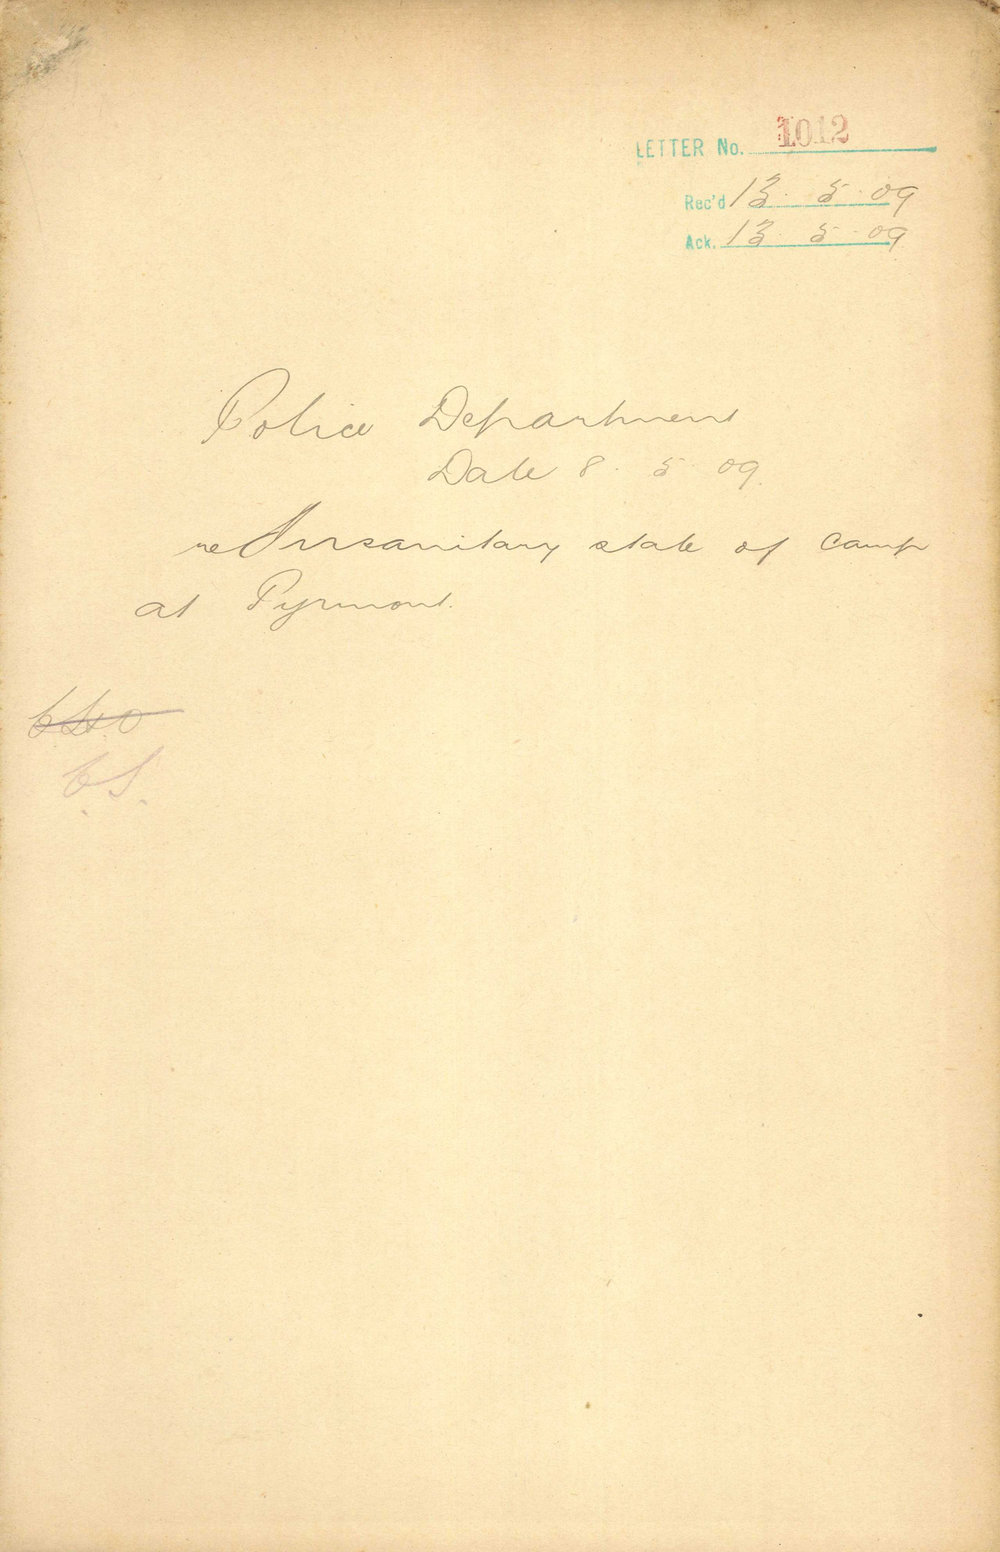 LETTER No. 1012
Rec'd 13. 5. 09
Ack. 13. 5. 09
Police Department
Date 8. 5. 09.
re Insanitary state of camp
at Pyrmont.
C.S.